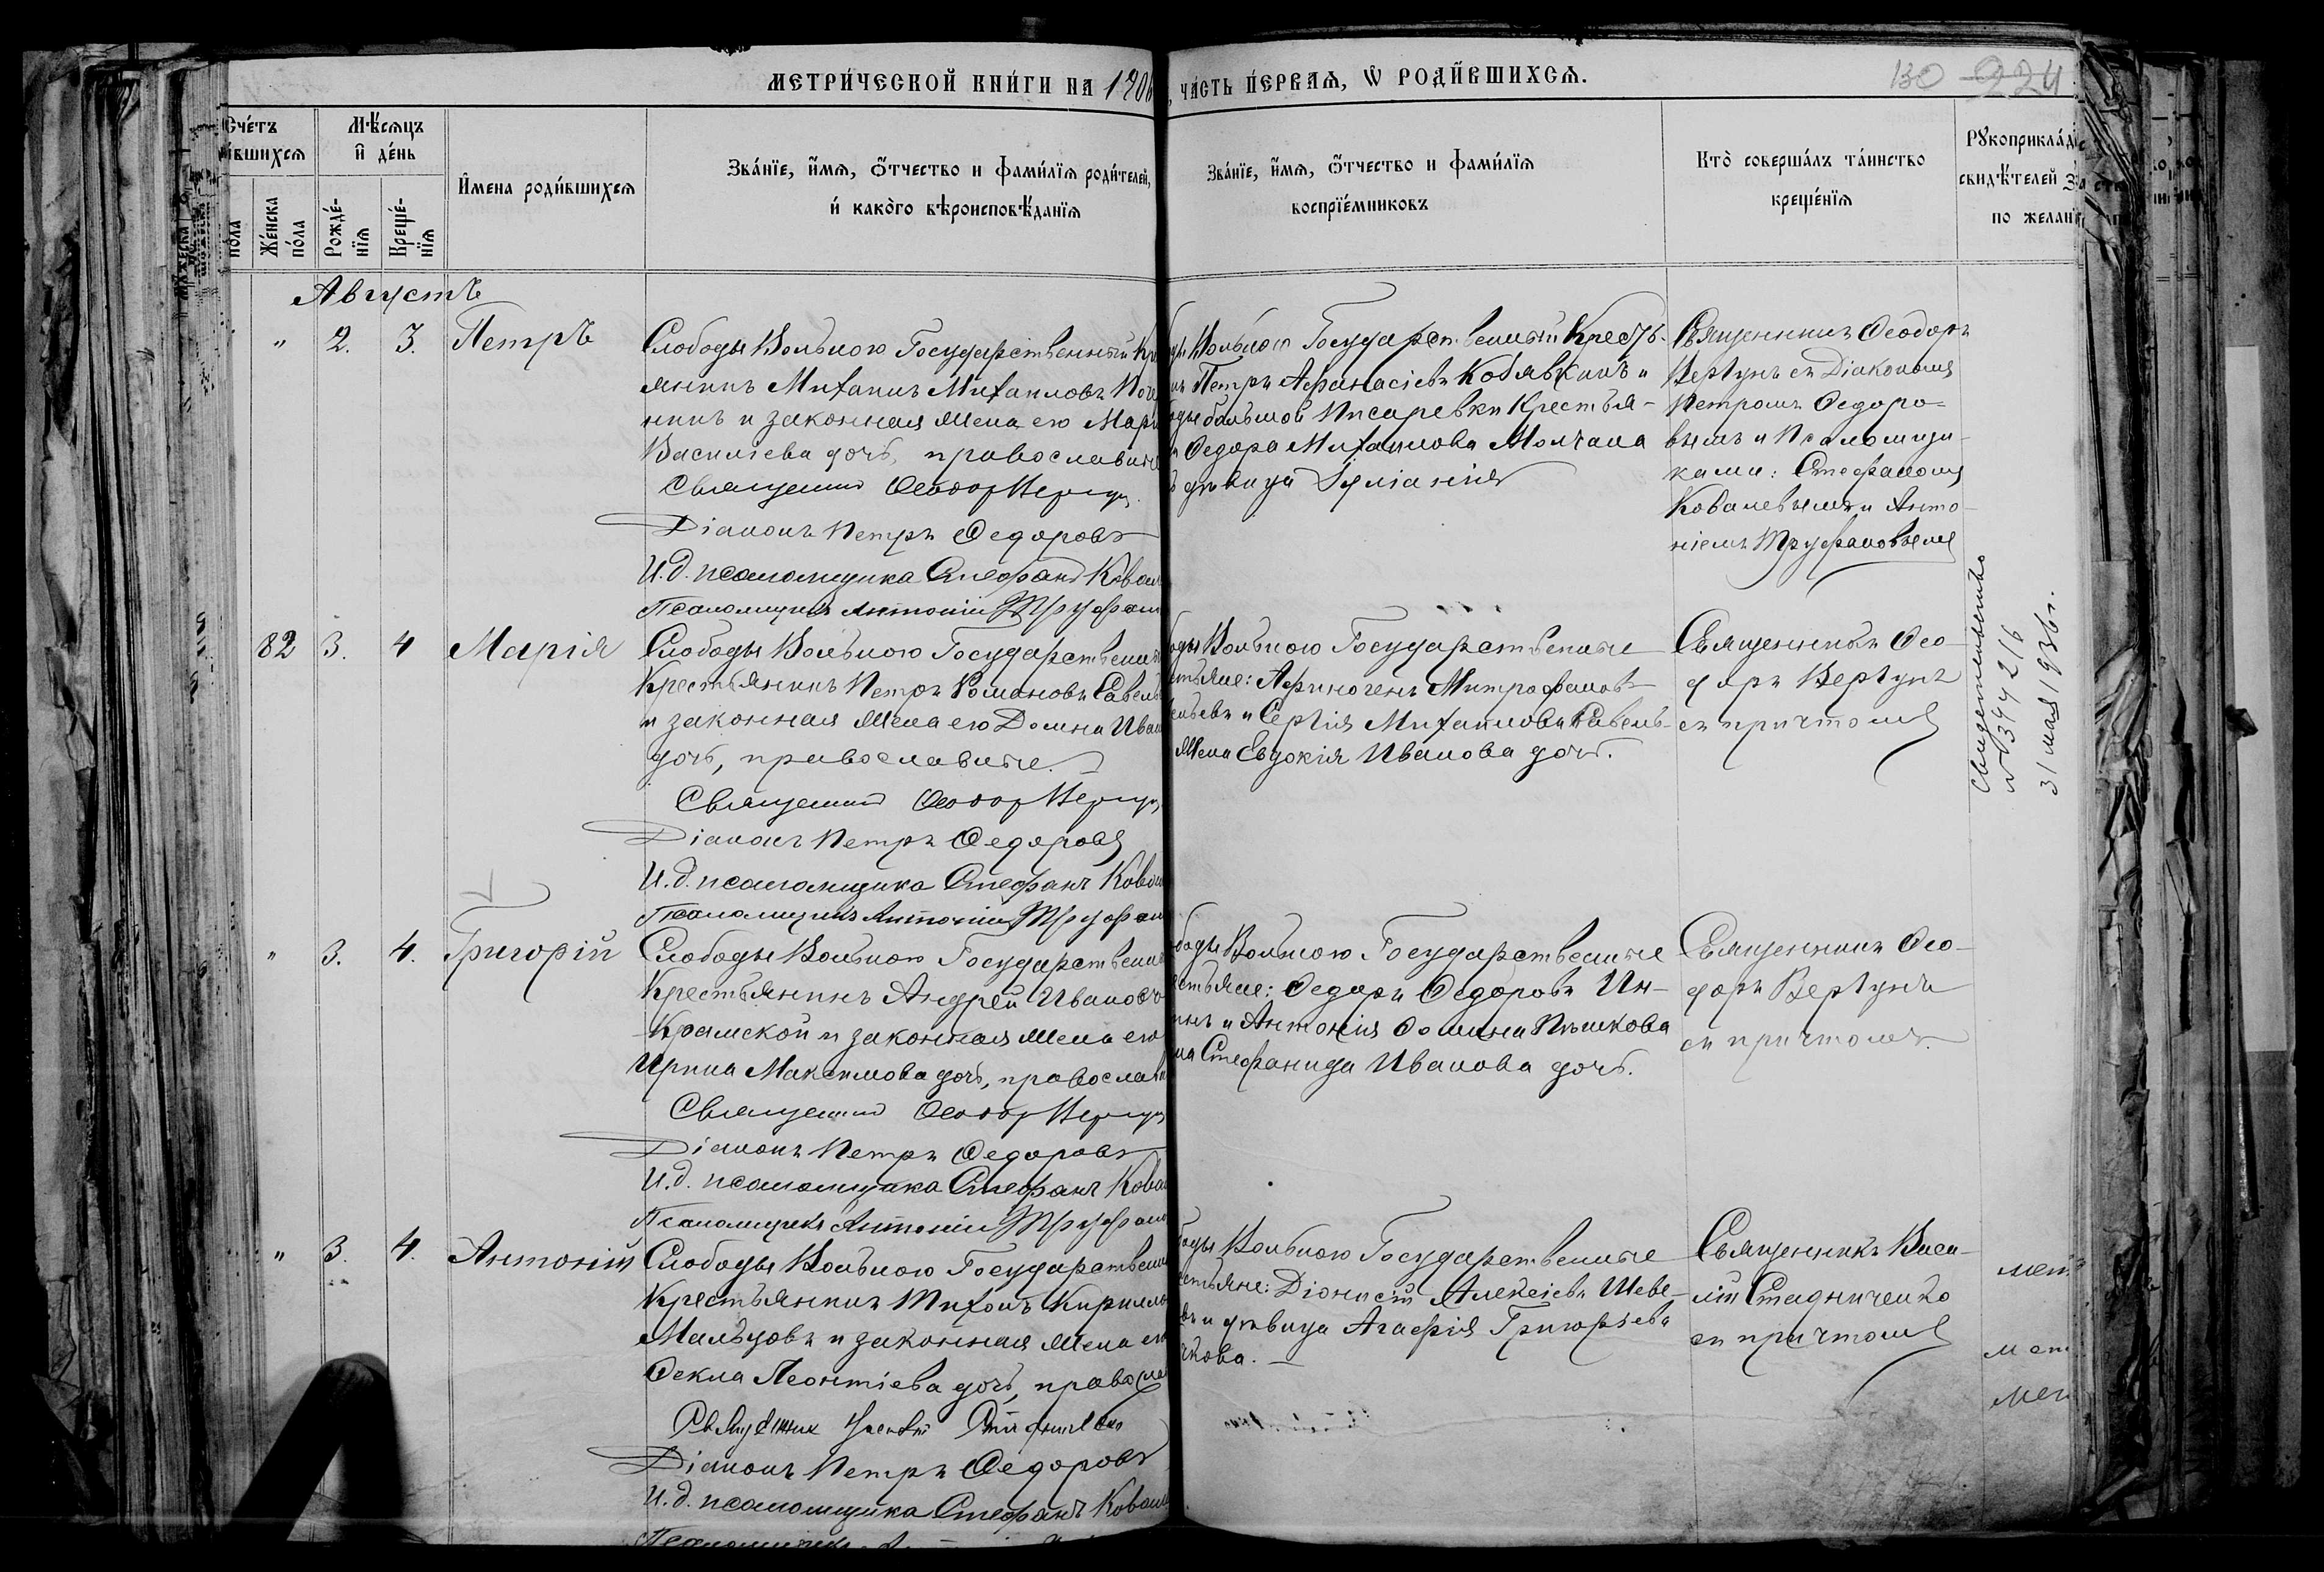 МЕТРИ́ЧЕСКОЙ КНИ́ГИ НА 1906
, ЧА́СТЬ ПЕ́РВАЯ, Ѡ РОДИ́ВШИХСЯ.
130 224
Сче́тъ
и́вшихся
Мѣ́сяцъ
и де́нь
По́ла
Же́нска
по́ла
Рожде́-
нїя
Креще́-
нїя
И́мена роди́вшихся
Зва́нїе, и́мя, ѻ́тчество и фами́лїя роди́телей,
и како́го вѣроисповѣ́данїя
Зва́нїе, и́мя, ѻ́тчество и фами́лїя
воспрїе́мниковъ
Кто̀ соверша́лъ та́инство
креще́нїя
Рꙋкоприкла́д
свидѣ́телей за
по жела́нї
Августъ
" 2. 3. Петръ
Слободы Вольного Государственный Кр
янинъ Михаилъ Михаиловъ
нинъ и законная жена его Мари
Василіева дочь, православные
Священник Феодор Вергун
Діаконъ Петръ Федоровъ
И.д. псаломщика Стефанъ Ковал
Псаломщикъ Антоній Труфан
Вольного Государственный Кресть-
Петръ Афанасіевъ Кобявкинъ и
большой Писаревки Крестья-
Федора Михаилова Молчана
дѣвица Іуліанія
Священникъ Феодоръ
Вергунъ съ Діакономъ
Петромъ Федоро-
вымъ и Псаломщи-
ками: Стефаномъ
Ковалевымъ и Анто-
ніемъ Труфановымъ
82 3. 4 Марія
Слободы Вольного Государственный
Крестьянинъ Петръ Романовъ Савель
и законная жена его Домна Иван
дочь, православные.
Священник Феодор Вергун
Діаконъ Петръ Федоровъ
И.д. псаломщика Стефанъ Ковал
Псаломщикъ Антоній Труфан
Вольного Государственные
стьяне: Афиногенъ Митрофанов
ельевъ и Сергія Михаилова Савель-
жена Евдокія Иванова дочь.
Священникъ Фео-
доръ Вергунъ
съ причтомъ
Свидетельство
№ 344216
31 мая 1936 г.
" 3. 4. Григорій
Слободы Вольного Государственный
Крестьянинъ Андрей Ивановъ
Крамской и законная жена его
Ирина Максимова дочь, православн
Священник Феодор Вергун
Діаконъ Петръ Федоровъ
И.д. псаломщика Стефанъ Ковал
Псаломщикъ Антоній Труфано
боды Вольного Государственные
естьяне: Федоръ Федоровъ Ин-
инъ и Антонія Фомина Пѣшкова
на Стефанида Иванова дочь.
Священникъ Фео-
доръ Вергунъ
съ причтомъ.
" 3. 4. Антоній
Слободы Вольного Государственн
Крестьянинъ Тихонъ Кирилло
Мальцовъ и законная жена ег
Фекла Леонтіева дочь, православ
Священник
Діаконъ Петръ Федоровъ
И.д. псаломщика Стефанъ Ковал
боды Вольного Государственные
естьяне: Діонисій Алексіевъ Шеве-
въ и дѣвица Агафія Григорьева
чкова.
Священникъ Васи-
лій Стадниченко
съ причтомъ